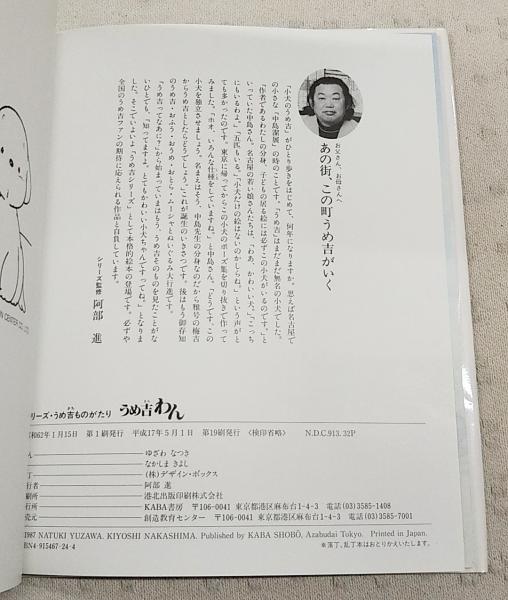 お父さん、お母さんへ
あの街、この町うめ吉がいく
「小犬のうめ吉」がひとり歩きをはじめて、何年になりますか。思えば名古屋で
の小さな「中島潔展」の時のことです。「うめ吉」はまだまだ無名の小犬でした。
「作者であるわたしの分身、子どもの居る絵には必ずこの小犬がいるのです。」と
いっていた中島さん。名古屋の若い娘さんたちは、「わあ、かわいい犬。」「こっち
にもいるわよ。」「五匹もいる。」「小犬だけの絵はないのかしらね。」という声がと
ても多かったのです。東京に帰ってからこの小犬のポーズ集を切り抜きで作って
みました。「ホオ、いろんな仕種をしていますね。」と中島さん。「どうです、この
小犬を独立させましょう。名まえはそう、中島先生の分身なのだから雅号の梅吉
からうめ吉としたらどうでしょう。」これが誕生のいきさつです。後はもう御存知
のうめ吉・おふう・おうめ・おとら・ムーシャとぬいぐるみ大行進です。
「うめ吉ってなあに？」から始まっていまはもう、うめ吉そのものを見たことがな
いひとでも、「知ってますよ。とてもかわいい小犬ちゃんですってね。」となりま
した。そこでいよいよ「うめ吉シリーズ」として本格的絵本の登場です。必ずや
全国のうめ吉ファンの期待に応えられる作品と自負しています。
シリーズ監修 阿部 進
N CENTER CO., LTD.
リーズ・うめ吉ものがたり うめ吉わん
和62年1月15日 第1刷発行 平成17年5月1日 第19刷発行 〈検印省略〉 N.D.C.913. 32P
ん ゆざわ なつき
なかしま きよし
丁 (株)デザイン・ボックス
行者 阿部 進
刷所 港北出版印刷株式会社
行所 KABA書房 〒106-0041 東京都港区麻布台1-4-3 電話(03)3585-1408
売元 創造教育センター 〒106-0041 東京都港区麻布台1-4-3 電話(03)3585-7001
1987 NATUKI YUZAWA. KIYOSHI NAKASHIMA. Published by KABA SHOBŌ, Azabudai Tokyo. Printed in Japan.
BN4-915467-24-4
※落丁、乱丁本はおとりかえいたします。